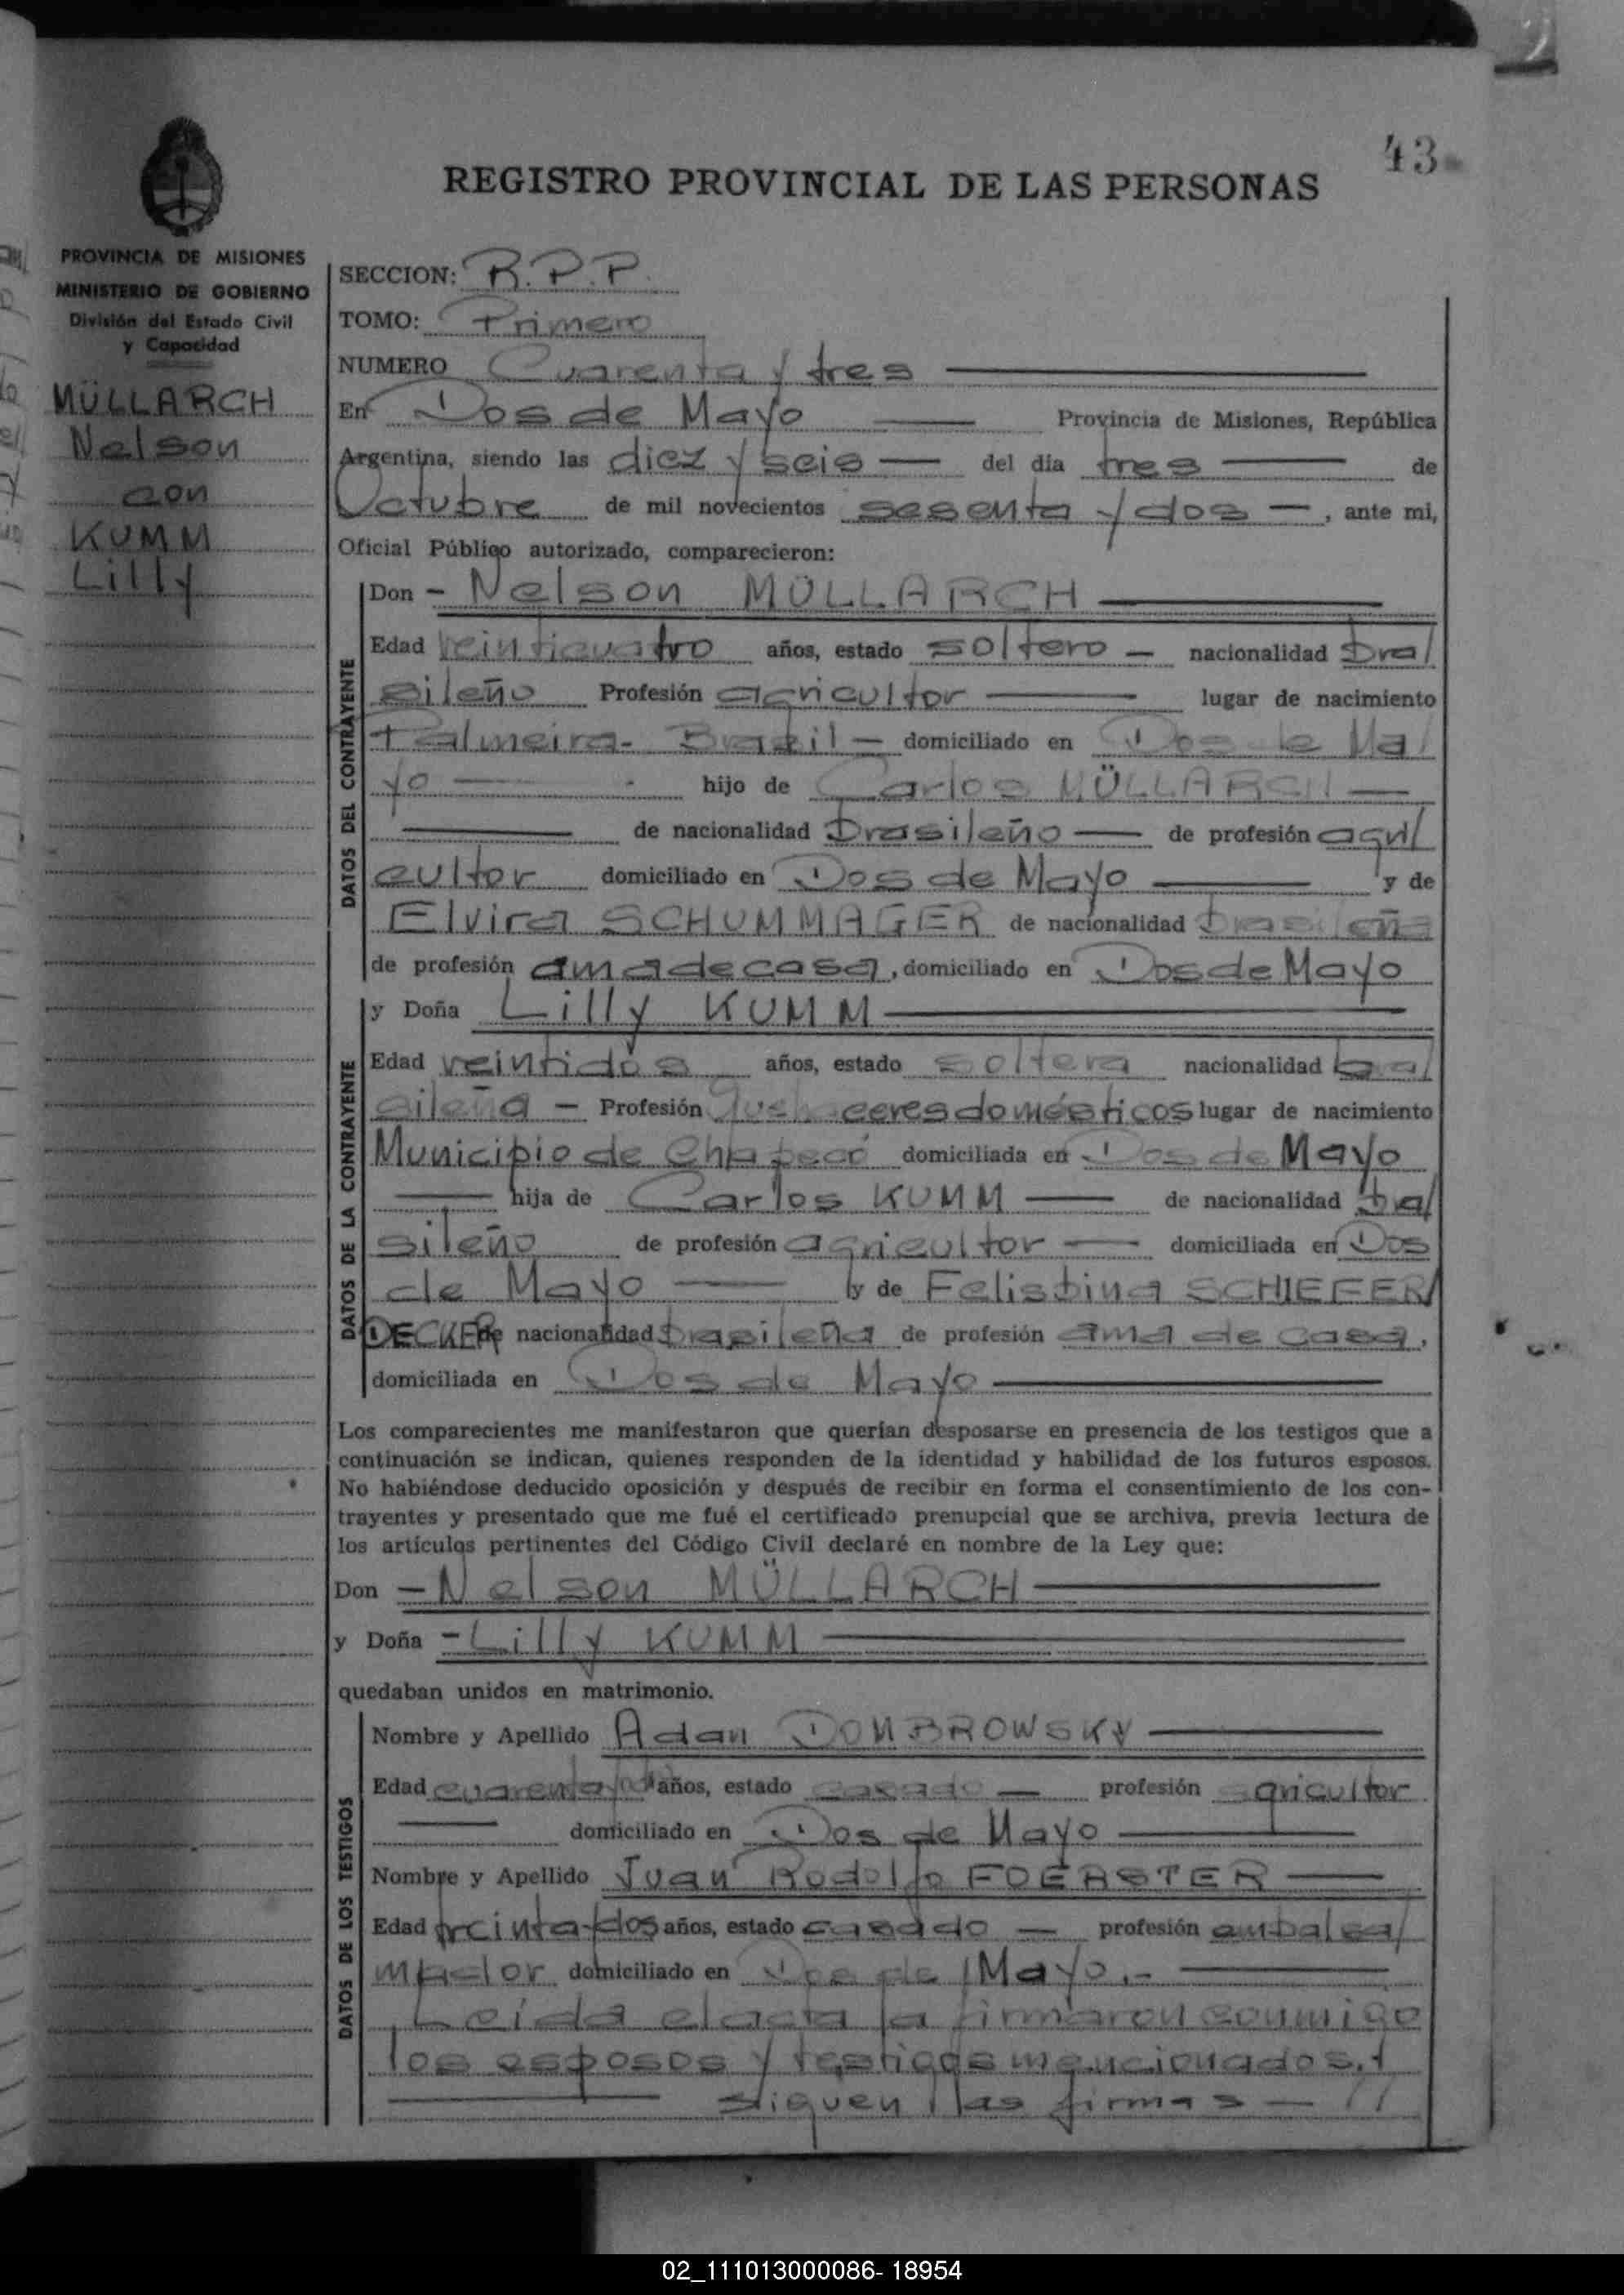 43
REGISTRO PROVINCIAL DE LAS PERSONAS
PROVINCIA DE MISIONES
MINISTERIO DE GOBIERNO
División del Estado Civil
y Capacidad
MÜLLARCH
Nelson
con
KUMM
Lilly
SECCION: R.P.P.
TOMO: Primero
NUMERO Cuarenta y tres
En Dos de Mayo Provincia de Misiones, República
Argentina, siendo las diez y seis del día tres de
Octubre de mil novecientos sesenta y dos, ante mi,
Oficial Público autorizado, comparecieron:
DATOS DEL CONTRAYENTE
Don - Nelson MÜLLARCH
Edad veinticuatro años, estado soltero nacionalidad bra/
sileño Profesión agricultor lugar de nacimiento
Palmeira- Brazil domiciliado en Dos de Ma/
yo hijo de Carlos MÜLLARCH
de nacionalidad brasileño de profesión agri/
cultor domiciliado en Dos de Mayo y de
Elvira SCHUMMAGER de nacionalidad brasileña
de profesión ama de casa, domiciliado en Dos de Mayo
DATOS DE LA CONTRAYENTE
y Doña Lilly KUMM
Edad veintidós años, estado soltera nacionalidad bra/
sileña - Profesión ceres domésticos lugar de nacimiento
Municipio de Chapecó domiciliada en Dos de Mayo
hija de Carlos KUMM de nacionalidad bra/
sileño de profesión agricultor domiciliada en Dos
de Mayo y de Felisbina SCHIEFER/
DECKER de nacionalidad brasileña de profesión ama de casa,
domiciliada en Dos de Mayo
Los comparecientes me manifestaron que querían desposarse en presencia de los testigos que a
continuación se indican, quienes responden de la identidad y habilidad de los futuros esposos.
No habiéndose deducido oposición y después de recibir en forma el consentimiento de los con-
trayentes y presentado que me fué el certificado prenupcial que se archiva, previa lectura de
los artículos pertinentes del Código Civil declaré en nombre de la Ley que:
Don - Nelson MÜLLARCH
y Doña - Lilly KUMM
quedaban unidos en matrimonio.
DATOS DE LOS TESTIGOS
Nombre y Apellido Adan DOMBROWSKY
Edad cuarenta y años, estado casado profesión agricultor
domiciliado en Dos de Mayo
Nombre y Apellido Juan Rodolfo FOERSTER
Edad treinta y dos años, estado casado profesión embalsa/
mador domiciliado en Dos de Mayo.-
Leída el acta la firmaron conmigo
los esposos y testigos mencionados.
siguen las firmas - //
02_111013000086- 18954